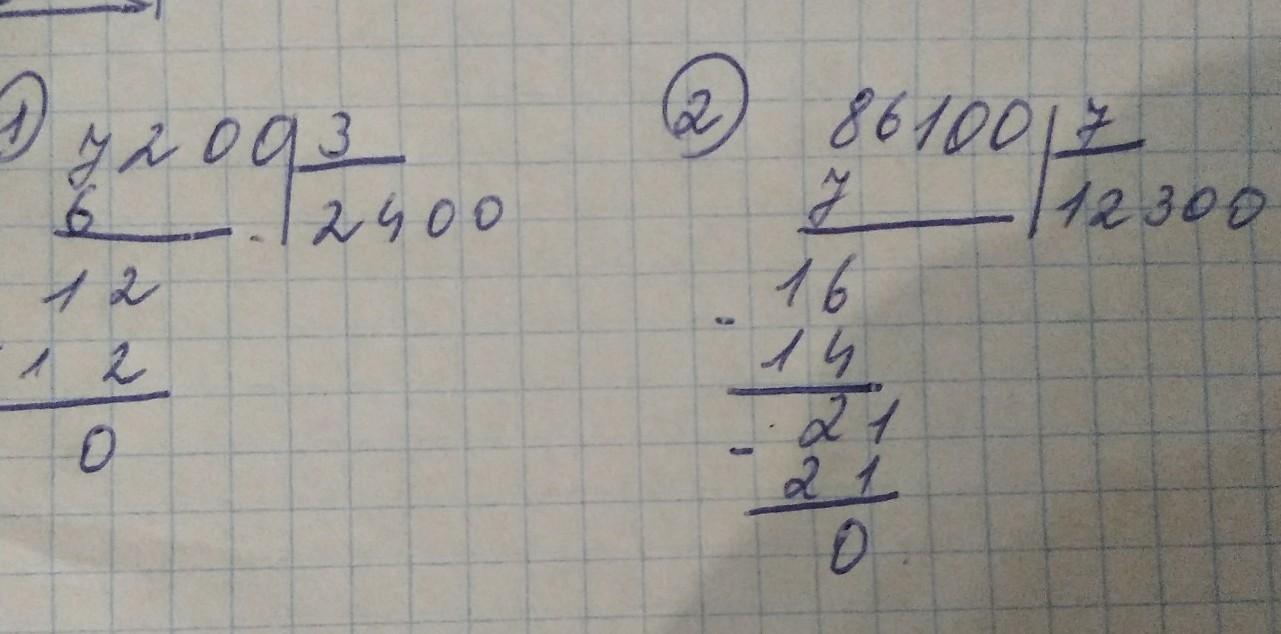 1) 7200 3
6 2400
12
12
0
2 86100 7
7 12300
16
- 14
21
- 21
0